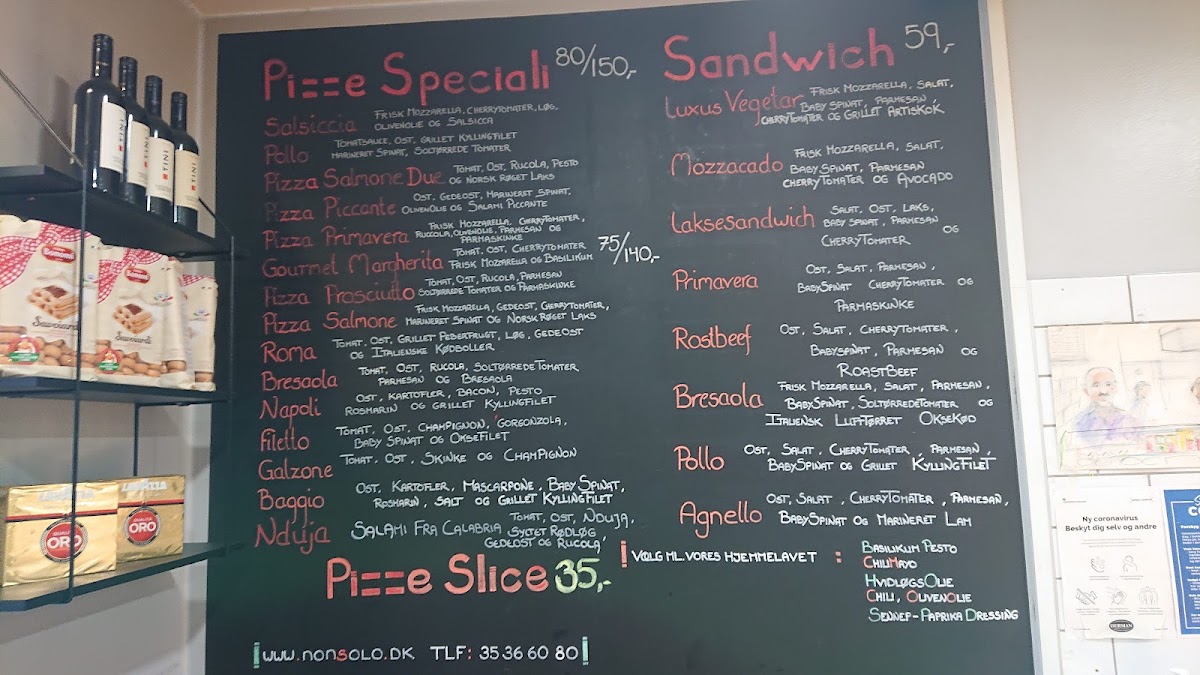 Pizze Speciali 80/150,-
Salsiccia Frisk Mozzarella, Cherrytomater, Løg,
Olivenolie og Salsicca
Pollo Tomatsauce, Ost, Grillet Kyllingfilet
Marineret Spinat, Soltørrede Tomater
Pizza Salmone Due Tomat, Ost, Rucola, Pesto
og Norsk Røget Laks
Pizza Piccante Ost, Gedeost, Marineret Spinat,
Olivenolie og Salami Piccante
Pizza Primavera Frisk Mozzarella, Cherrytomater,
Ruccola, Olivenolie, Parmesan og
Parmaskinke
Gourmet Margherita Tomat, Ost, Cherrytomater
Frisk Mozzarella og Basilikum 75/140,-
Pizza Prosciutto Tomat, Ost, Rucola, Parmesan
Soltørrede Tomater og Parmaskinke
Pizza Salmone Frisk Mozzarella, Gedeost, Cherrytomater,
Marineret Spinat og Norsk Røget Laks
Roma Tomat, Ost, Grillet Peberfrugt, Løg, Gedeost
og Italienske Kødboller
Bresaola Tomat, Ost, Rucola, Soltørrede Tomater
Parmesan og Bresaola
Napoli Ost, Kartofler, Bacon, Pesto
Rosmarin og Grillet Kyllingfilet
Filetto Tomat, Ost, Champignon, Gorgonzola,
Baby Spinat og Oksefilet
Galzone Tomat, Ost, Skinke og Champignon
Baggio Ost, Kartofler, Mascarpone, Baby Spinat,
Rosmarin, Salt og Grillet Kyllingfilet
Nduja Salami Fra Calabria, Tomat, Ost, Nduja,
Syltet Rødløg
Gedeost og Rucola
Pizze Slice 35,-
www.nonsolo.dk TLF: 35 36 60 80
Sandwich 59,-
Luxus Vegetar Frisk Mozzarella, Salat,
Baby Spinat, Parmesan,
Cherrytomater og Grillet Artiskok
Mozzacado Frisk Mozzarella, Salat,
Baby Spinat, Parmesan
Cherrytomater og Avocado
Laksesandwich Salat, Ost, Laks,
Baby Spinat, Parmesan
og
Cherrytomater
Primavera Ost, Salat, Parmesan,
BabySpinat Cherrytomater og
Parmaskinke
Rostbeef Ost, Salat, Cherrytomater,
Babyspinat, Parmesan og
Roastbeef
Bresaola Frisk Mozzarella, Salat, Parmesan,
BabySpinat, Soltørredetomater og
Italiensk Lufttørret Oksekød
Pollo Ost, Salat, Cherrytomater, Parmesan,
BabySpinat og Grillet Kyllingfilet
Agnello Ost, Salat, Cherrytomater, Parmesan,
BabySpinat og Marineret Lam
! Vælg ml. vores hjemmelavet :
Basilikum Pesto
ChiliMayo
HvidløgsOlie
Chili, OlivenOlie
Sennep-Paprika Dressing
TINI
TINI
TINI
Bonomi
Savoiardi
Savoiardi
LAVAZZA
QUALITÀ
ORO
QUALITÀ
ORO
Ny coronavirus
Beskyt dig selv og andre